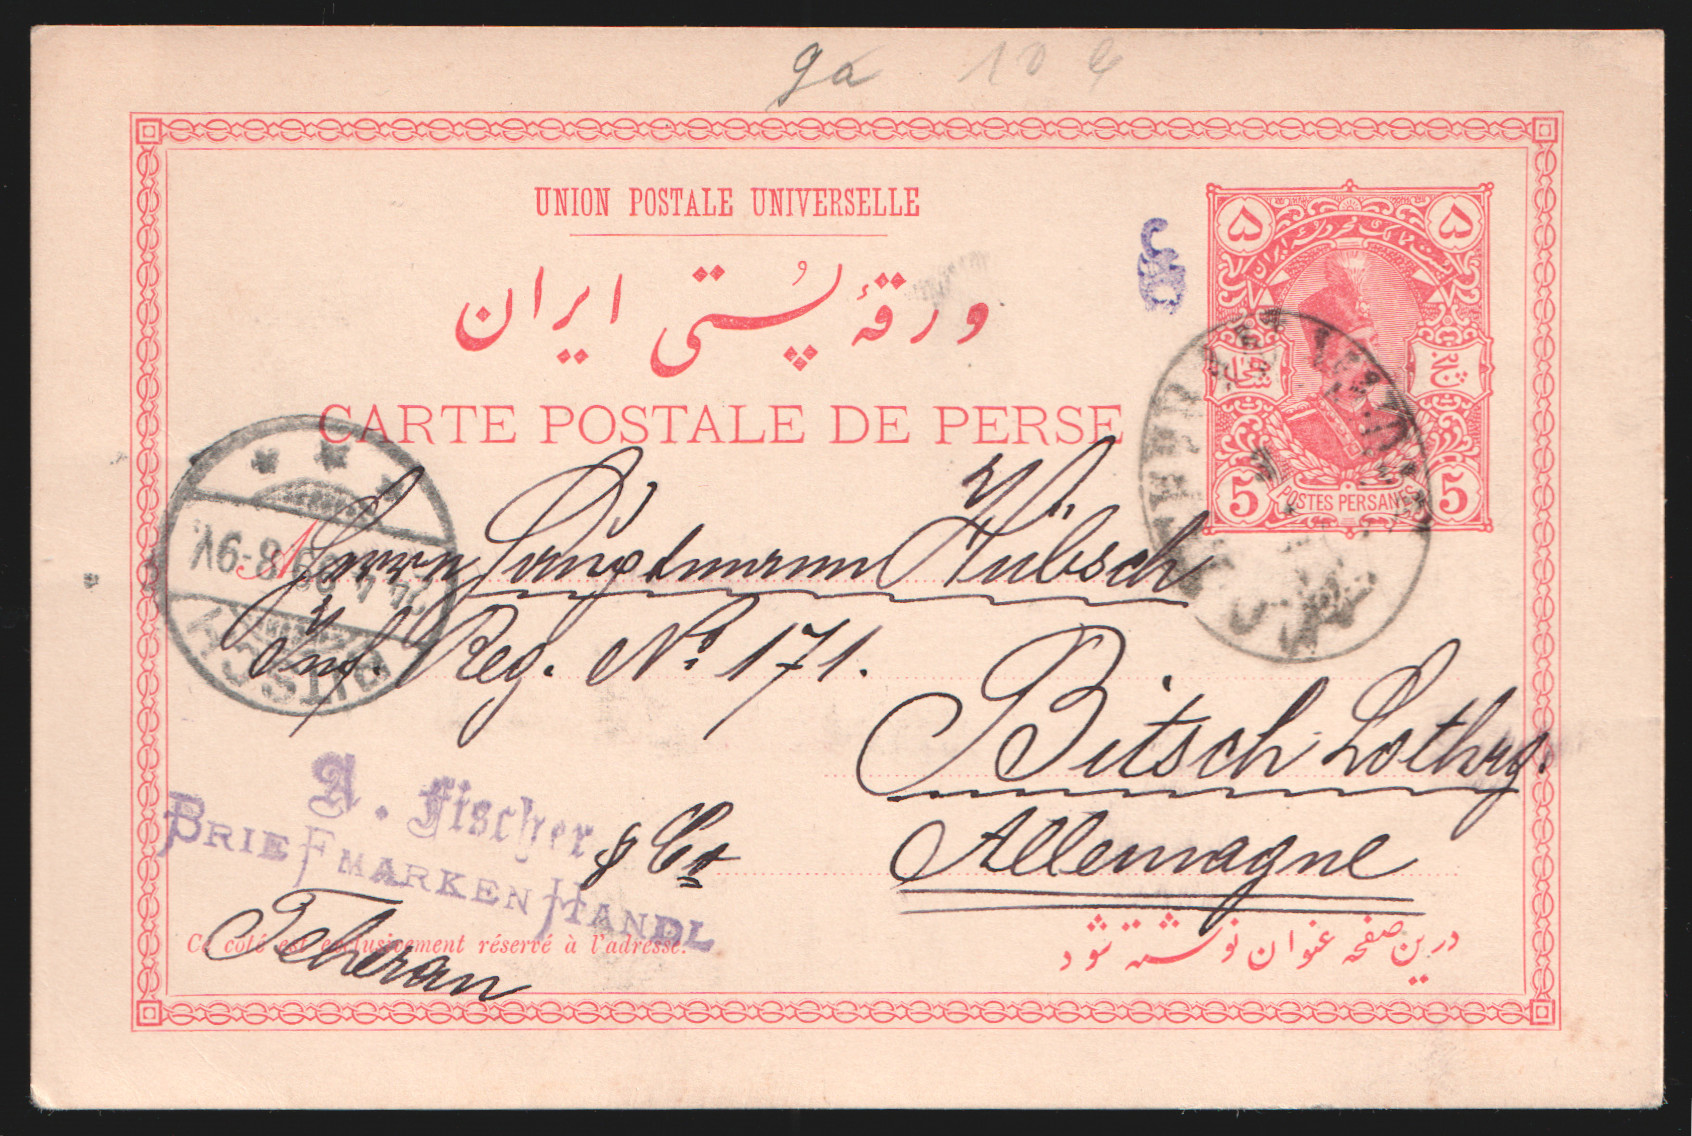 ga 10
UNION POSTALE UNIVERSELLE
ورقهٔ پُستی ایران
۵ ۵
CARTE POSTALE DE PERSE
5 POSTES PERSANES 5
TEHERAN
BITSCH
Herrn Hauptmann Hübsch
Inf. Reg. No. 171.
Bitsch Lothrg.
Allemagne
A. Fischer
BRIEFMARKENHANDL
& Co
Teheran
Ce côté est exclusivement réservé à l'adresse.
درین صفحه عنوان نوشته شود